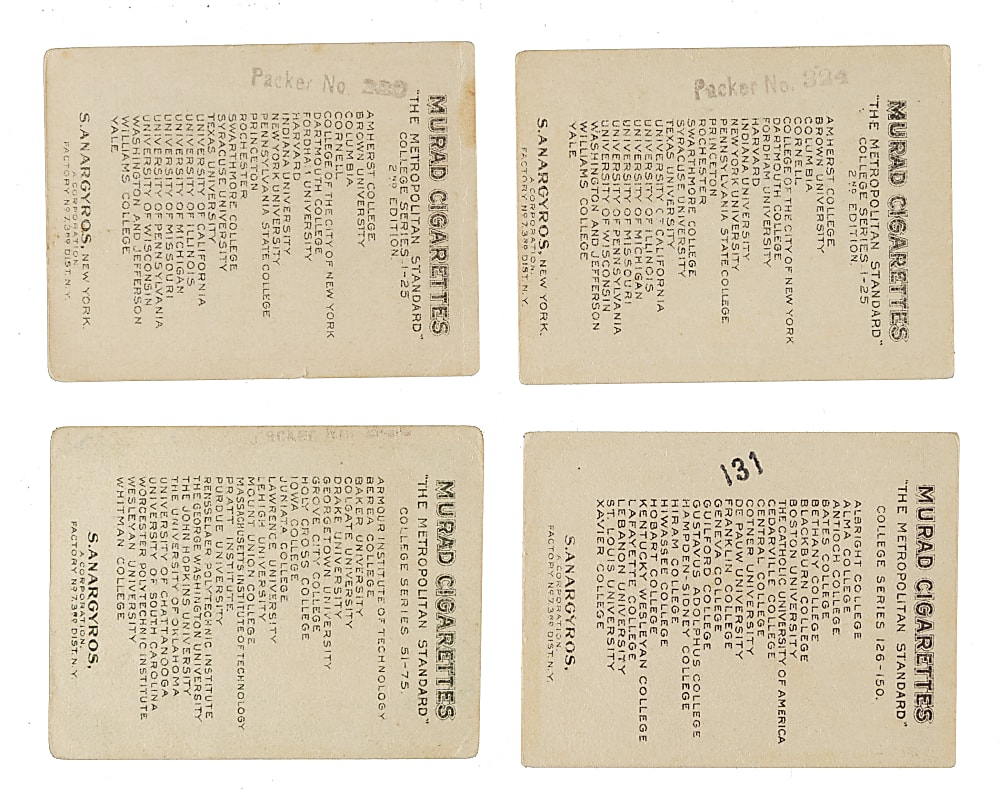 Packer No.
MURAD CIGARETTES
"THE METROPOLITAN STANDARD"
COLLEGE SERIES 1-25
2ND EDITION
AMHERST COLLEGE
BROWN UNIVERSITY
COLUMBIA
CORNELL
COLLEGE OF THE CITY OF NEW YORK
DARTMOUTH COLLEGE
FORDHAM UNIVERSITY
HARVARD
INDIANA UNIVERSITY
NEW YORK UNIVERSITY
PENNSYLVANIA STATE COLLEGE
PRINCETON
ROCHESTER
SWARTHMORE COLLEGE
SYRACUSE UNIVERSITY
TEXAS UNIVERSITY
UNIVERSITY OF CALIFORNIA
UNIVERSITY OF ILLINOIS
UNIVERSITY OF MICHIGAN
UNIVERSITY OF MISSOURI
UNIVERSITY OF PENNSYLVANIA
UNIVERSITY OF WISCONSIN
WASHINGTON AND JEFFERSON
WILLIAMS COLLEGE
YALE
S. ANARGYROS, NEW YORK.
A CORPORATION.
FACTORY Nº 7, 3RD DIST. N.Y.
Packer No. 324
MURAD CIGARETTES
"THE METROPOLITAN STANDARD"
COLLEGE SERIES 1-25
2ND EDITION
AMHERST COLLEGE
BROWN UNIVERSITY
COLUMBIA
CORNELL
COLLEGE OF THE CITY OF NEW YORK
DARTMOUTH COLLEGE
FORDHAM UNIVERSITY
HARVARD
INDIANA UNIVERSITY
NEW YORK UNIVERSITY
PENNSYLVANIA STATE COLLEGE
PRINCETON
ROCHESTER
SWARTHMORE COLLEGE
SYRACUSE UNIVERSITY
TEXAS UNIVERSITY
UNIVERSITY OF CALIFORNIA
UNIVERSITY OF ILLINOIS
UNIVERSITY OF MICHIGAN
UNIVERSITY OF MISSOURI
UNIVERSITY OF PENNSYLVANIA
UNIVERSITY OF WISCONSIN
WASHINGTON AND JEFFERSON
WILLIAMS COLLEGE
YALE
S. ANARGYROS, NEW YORK.
A CORPORATION.
FACTORY Nº 7, 3RD DIST. N.Y.
MURAD CIGARETTES
"THE METROPOLITAN STANDARD"
COLLEGE SERIES 51-75.
ARMOUR INSTITUTE OF TECHNOLOGY
BEREA COLLEGE
BAKER UNIVERSITY
COLGATE UNIVERSITY
DRAKE UNIVERSITY
GEORGETOWN UNIVERSITY
GROVE CITY COLLEGE
HOLY CROSS COLLEGE
IOWA COLLEGE
JUNIATA COLLEGE
LAWRENCE UNIVERSITY
LEHIGH UNIVERSITY
MOUNT UNION COLLEGE
MASSACHUSETTS INSTITUTE OF TECHNOLOGY
PRATT INSTITUTE
PURDUE UNIVERSITY
RENSSELAER POLYTECHNIC INSTITUTE
THE GEORGE WASHINGTON UNIVERSITY
THE JOHN HOPKINS UNIVERSITY
THE UNIVERSITY OF OKLAHOMA
UNIVERSITY OF CHATTANOOGA
UNIVERSITY OF SOUTH CAROLINA
WORCESTER POLYTECHNIC INSTITUTE
WESLEYAN UNIVERSITY
WHITMAN COLLEGE
S. ANARGYROS,
A CORPORATION.
FACTORY Nº 7, 3RD DIST. N.Y.
131
MURAD CIGARETTES
"THE METROPOLITAN STANDARD"
COLLEGE SERIES 126-150.
ALBRIGHT COLLEGE
ALMA COLLEGE
ANTIOCH COLLEGE
BATES COLLEGE
BETHANY COLLEGE
BLACKBURN COLLEGE
BOSTON UNIVERSITY
THE CATHOLIC UNIVERSITY OF AMERICA
CEDARVILLE COLLEGE
CENTRAL COLLEGE
COTNER UNIVERSITY
DE PAUW UNIVERSITY
FRANKLIN COLLEGE
GENEVA COLLEGE
GUILFORD COLLEGE
GUSTAVUS ADOLPHUS COLLEGE
HAMPDEN SIDNEY COLLEGE
HIRAM COLLEGE
HIWASSEE COLLEGE
HOBART COLLEGE
KENTUCKY WESLEYAN COLLEGE
LAFAYETTE COLLEGE
LEBANON UNIVERSITY
ST. LOUIS UNIVERSITY
XAVIER COLLEGE
S. ANARGYROS,
A CORPORATION.
FACTORY Nº 7, 3RD DIST. N.Y.